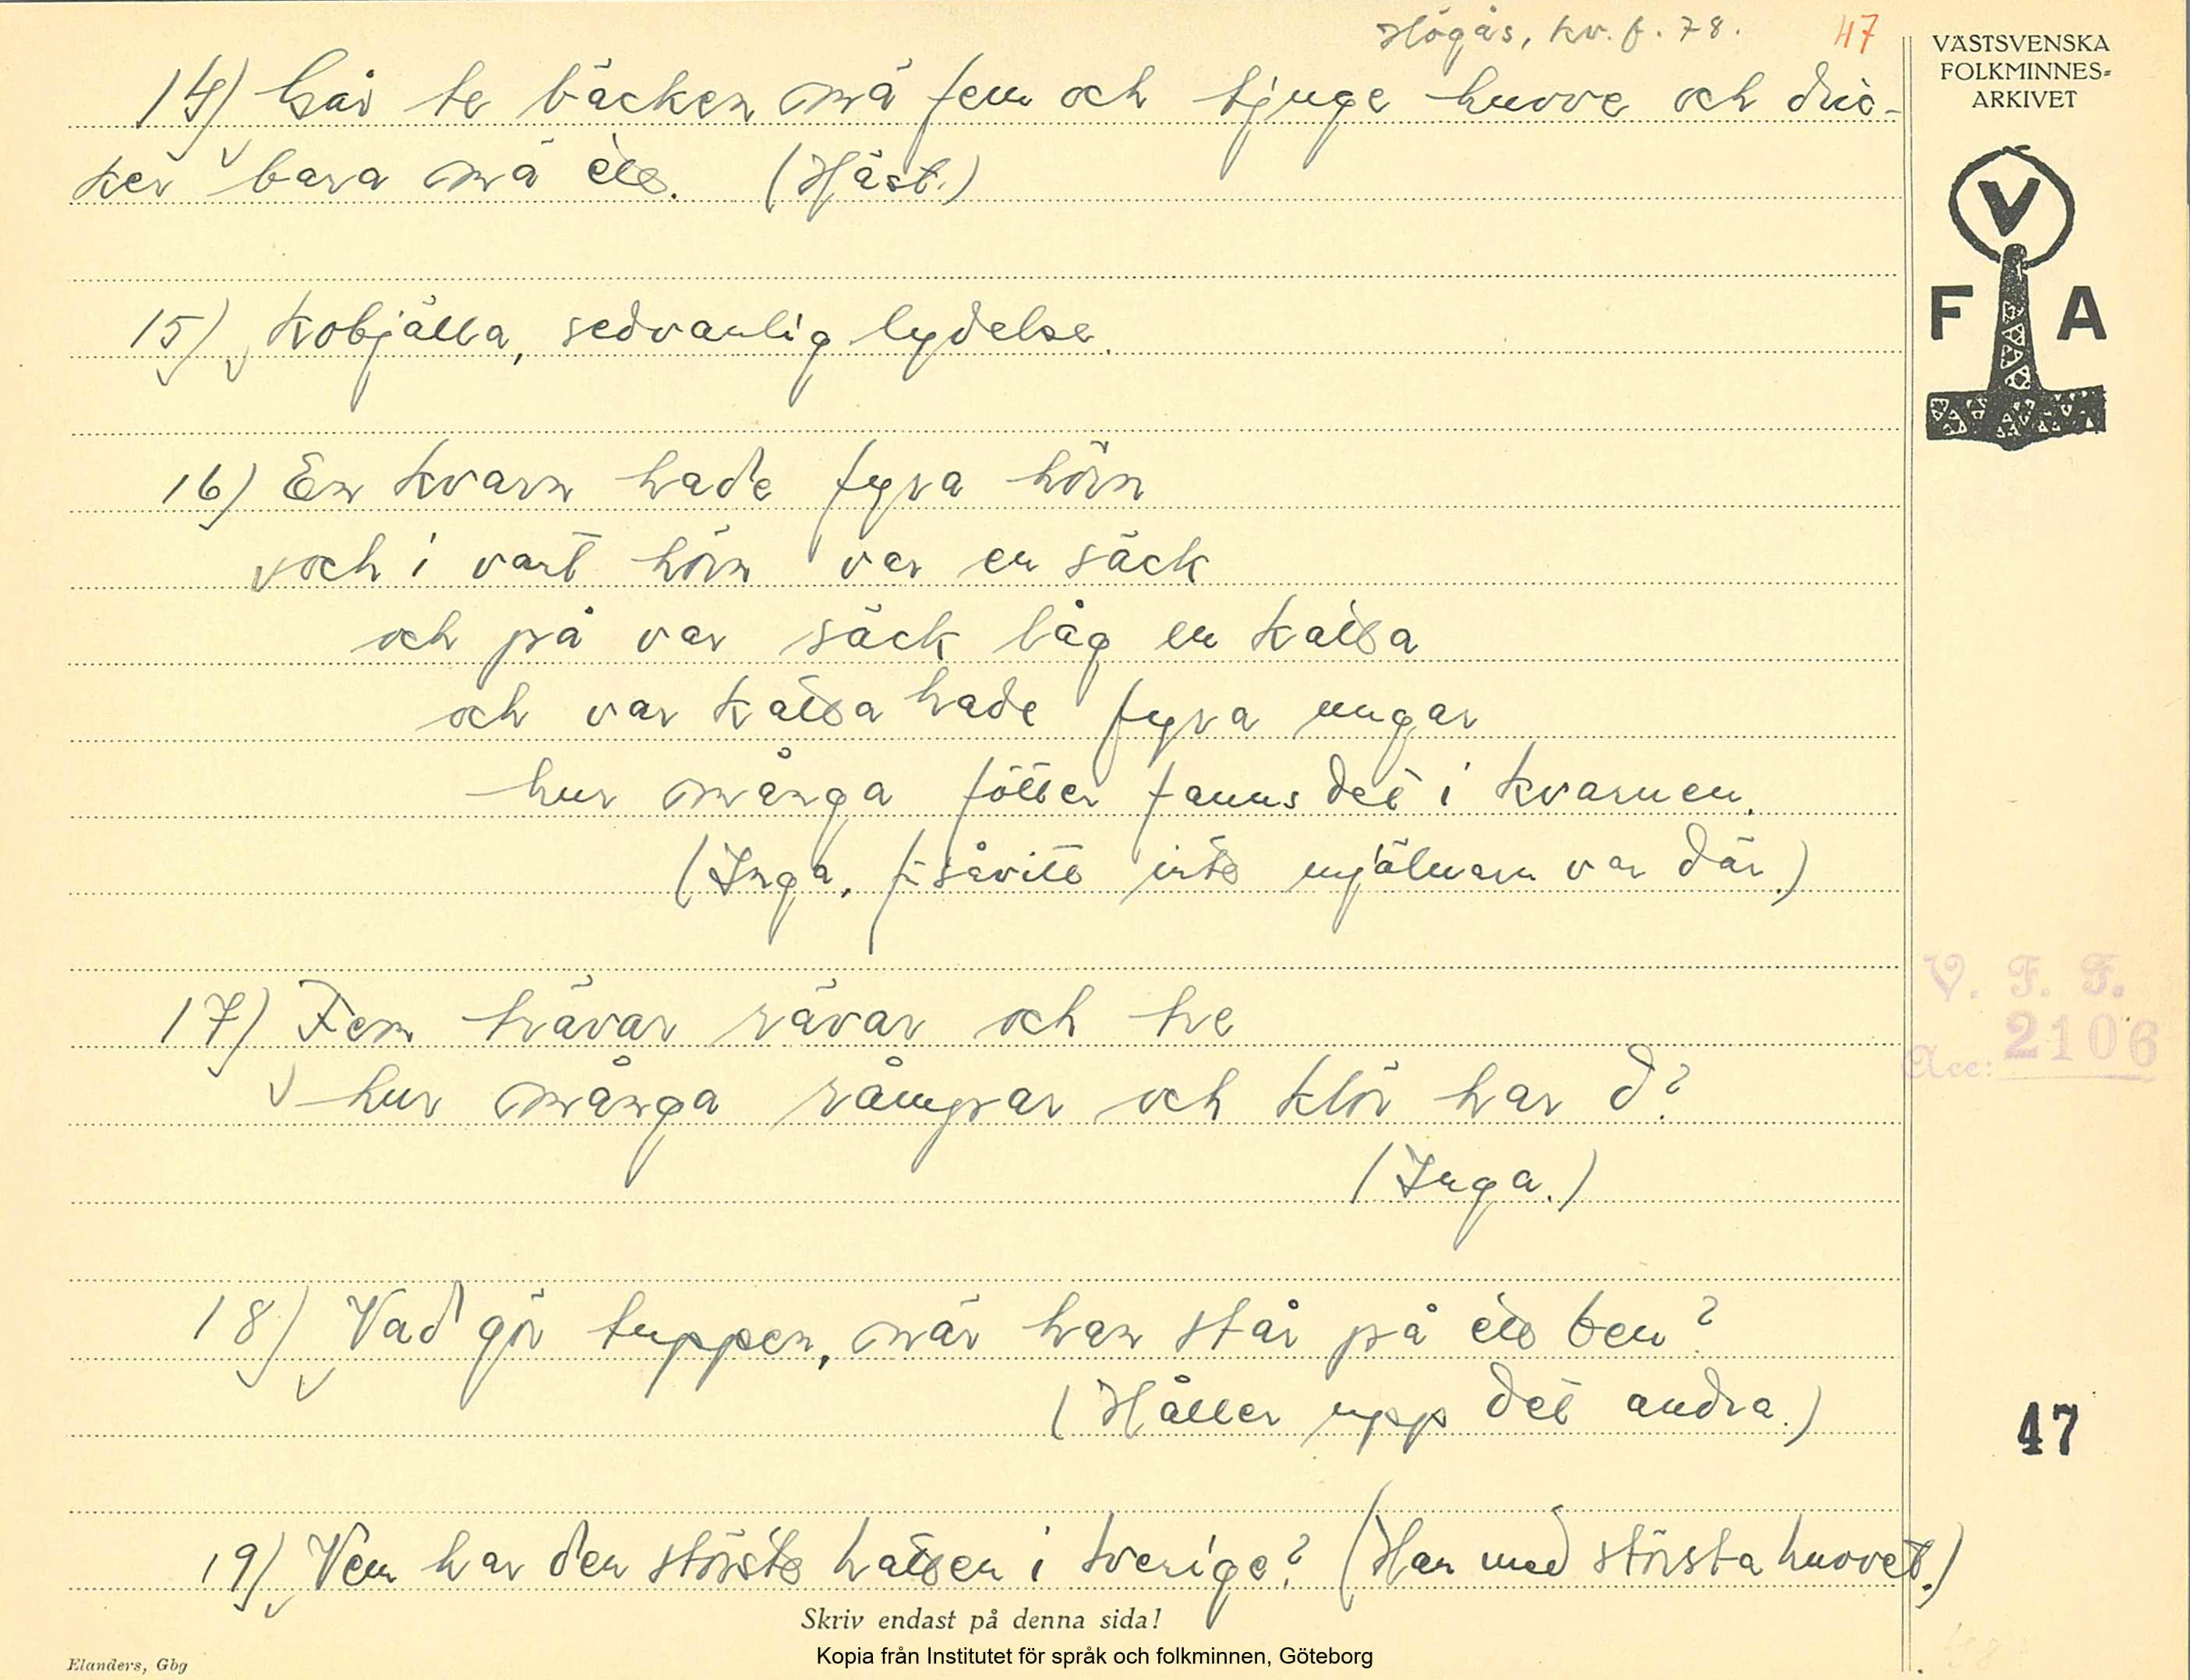 Högås, kv. f. 78. 47
VÄSTSVENSKA
FOLKMINNES-
ARKIVET
V
F A
14) Går te bäcken mä fem och tjuge huvve och dric-
ker bara mä ett. (Häst.)
15) Kobjälla, sedvanlig lydelse.
16) En kvarn hade fyra hörn
och i vart hörn var en säck
och på var säck låg en katta
och var katta hade fyra ungar
hur många fötter fanns det i kvarnen.
(Inga, såvitt inte mjölnarn var där.)
17) Fem hävar rävar och tre
hur många rämpar och klör har d?
(Inga.)
V. F. F.
Acc: 2106
18) Vad gör tuppen, när han står på ett ben?
(Håller upp det andra.)
47
19) Vem har den största hatten i Sverige? (Han med största huvvet.)
Skriv endast på denna sida!
Kopia från Institutet för språk och folkminnen, Göteborg
Elanders, Gbg